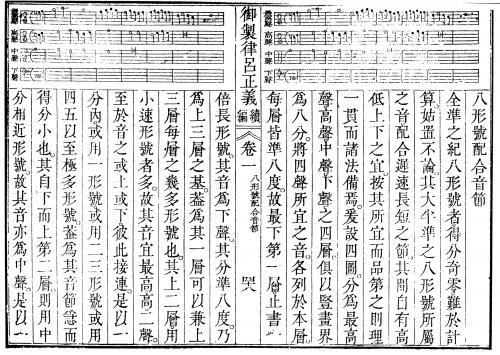 最高聲
高聲
中聲
下聲
八形號配合音節
全準之紀八形號者得分奇零難於計
算姑置不論其大半準之八形號所屬
之音配合遲速長短之節其間自有高
低上下之宜按其所宜而品第之則理
一貫而諸法備焉爰設四圖分爲最高
聲高聲中聲下聲之四層俱以豎畫界
爲八分將四聲所宜之音各列於本層
每層皆準八度故最下第一層止書一
御製律呂正義
續編
卷一
八形號配合音節
最高聲
高聲
中聲
下聲
倍長形號其音爲下聲其分準八度乃
爲上三層之基蓋爲其一層可以兼上
三層每層之幾多形號也其上二層用
小速形號者多故其音宜最高高二聲
至於音之或上或下彼此接連是以一
分內或用一形號或用二三形號或用
四五以至極多形號蓋爲其音節急而
得分小也其自下而上第二層則用中
分相近形號故其音亦爲中聲是以一